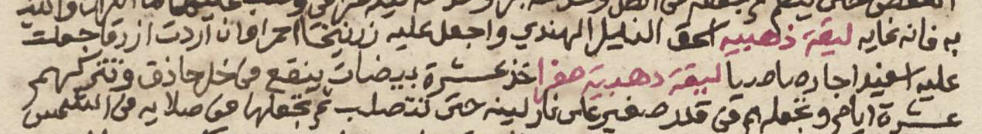 به فانه غايه ليقة ذهبيه اسحق النليل الهندي واجعل عليه زرنيخا احمر اوان اردت ازرق اجعلت
عليه اسفيداجا رصاصريا ليقة دهبية صفرا خذ عشرة بيضات ينقع فى خل حاذق وتتركهم
عشرة ايام وتجعلهم فى قدر صغير على نار لينه حتى تتصلب ثم تجعلها فى صلايه فى الشمس